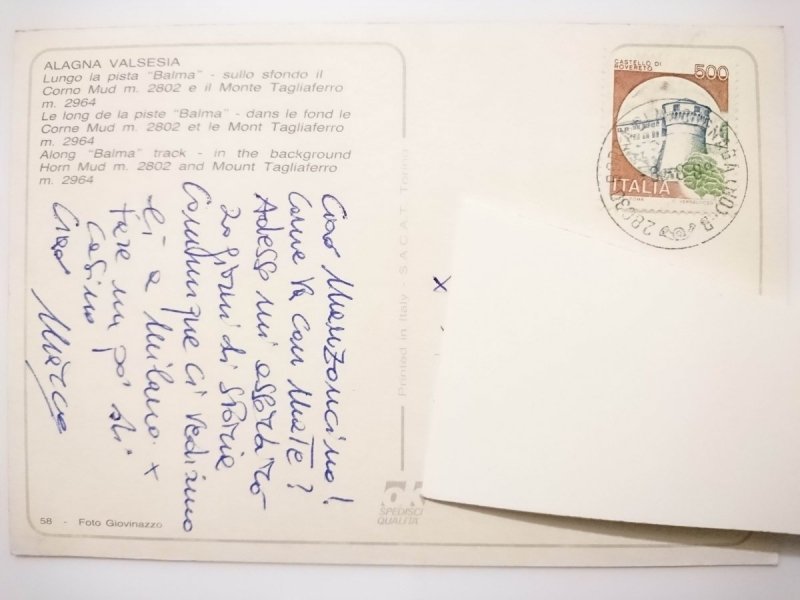 ALAGNA VALSESIA
Lungo la pista "Balma" - sullo sfondo il
Corno Mud m. 2802 e il Monte Tagliaferro
m. 2964
Le long de la piste "Balma" - dans le fond le
Corne Mud m. 2802 et le Mont Tagliaferro
m. 2964
Along "Balma" track - in the background
Horn Mud m. 2802 and Mount Tagliaferro
m. 2964
Ciao Manzoncino!
Come va con Mate?
Adesso mi assorbirò
20 giorni di storie
Comunque ci vediamo
lì a Milano x
fare un pó di
casino
Ciao Marco
58 - Foto Giovinazzo
Printed in Italy - S.A.C.A.T. Torino
OK
SPEDISCI
QUALITA'
x
CASTELLO DI
ROVERETO
500
ITALIA